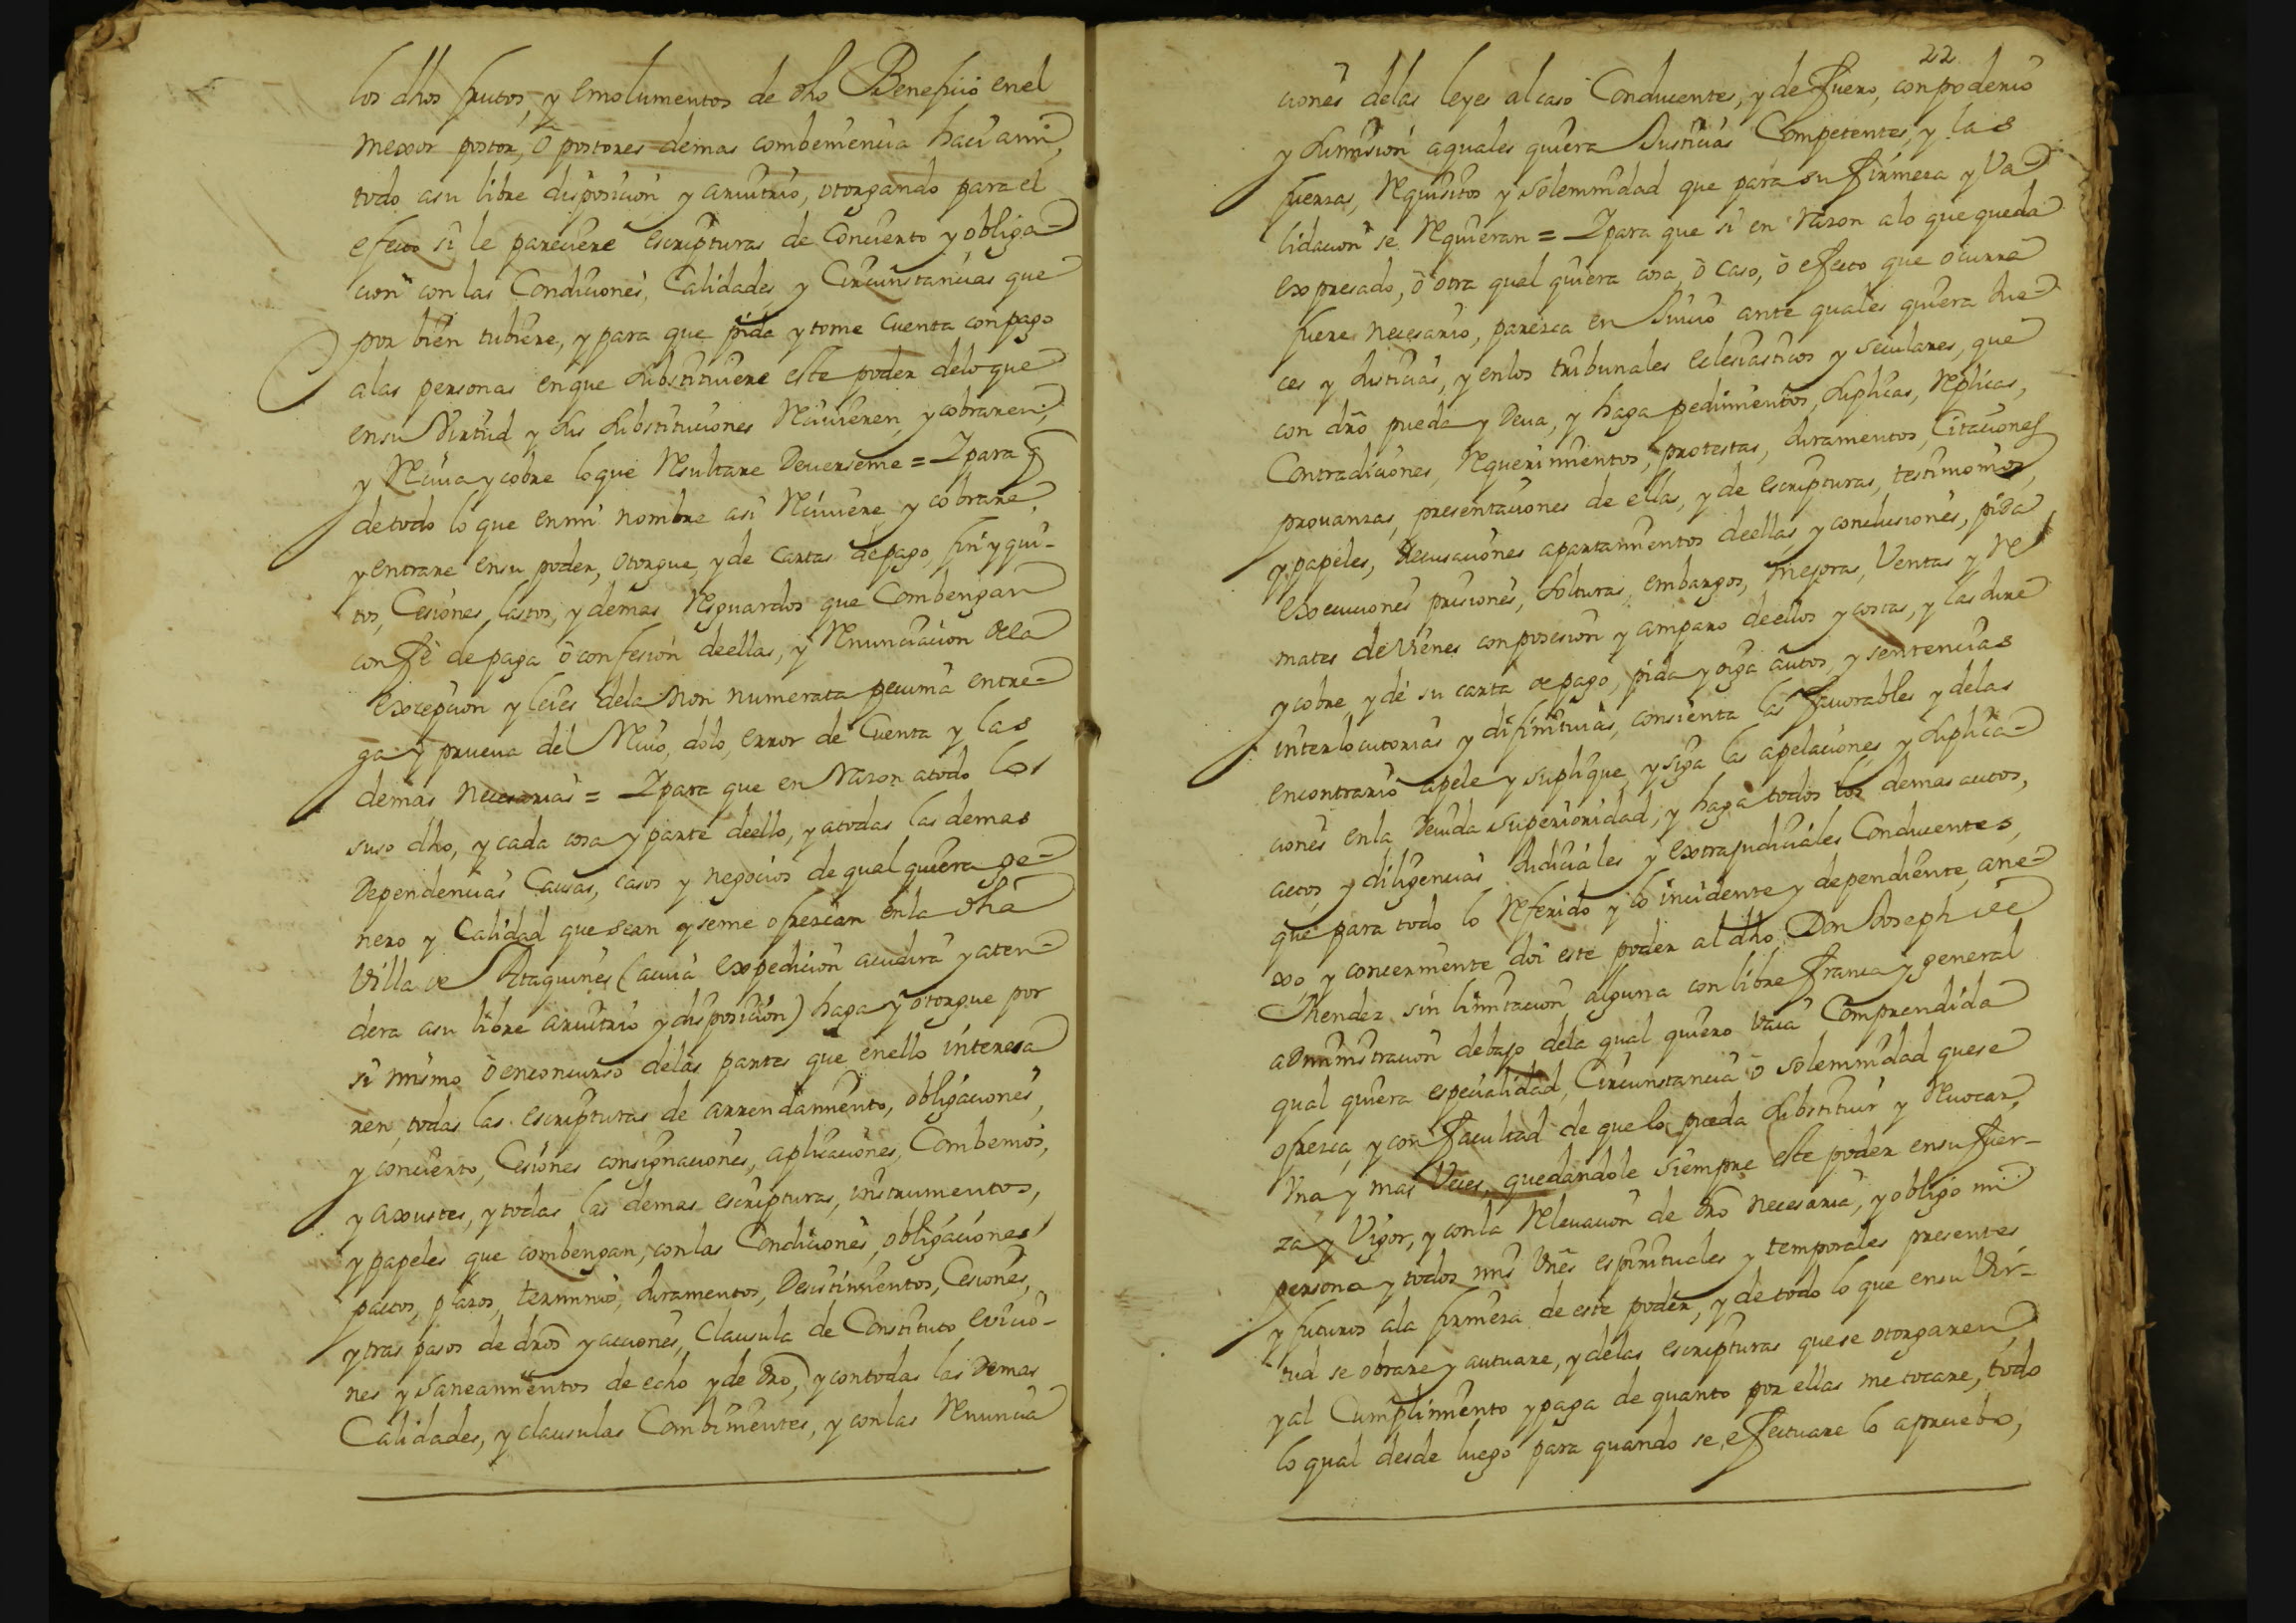 los dhos frutos, y emolumentos de dho Beneficio en el
mexor postor, ò postores demas combeniencia hacia mi,
todo asu libre disposicion y arvitrio, otorgando para el
efecto si le pareciere escripturas de Concierto y obliga-
cion con las Condiciones, Calidades, y Circunstancias que
por bien tubiere, y para que pida y tome Cuenta con pago
alas personas enque substituiere este poder delo que
ensu Virtud y sus substituciones Reciuieren, y cobraren,
y Reciua y cobre loque Resultare Deuerseme = Y para q
detodo lo que enmi nombre asi Reciuiere y cobrare,
y entrare ensu poder, otorgue, y de Cartas de pago, finiqui-
tos, Cesiones, lastos, y demas Resguardos que Combengan
con Fè de paga ò confesion deellas, y Renunciacion dela
excepcion y leies dela Non numerata pecunia entre-
ga y prueua del Reciuo, dolo, error de Cuenta y las
demas necesarias = Y para que en Razon atodo lo
suso dho, y cada cosa y parte deello, y atodas las demas
Dependencias Causas, casos y negocios de qual quiera ge-
nero y Calidad que sean y seme ofrezcan enla dha
Villa de Ataquines (acuia expedicion acudira y aten-
dera asu libre arvitrio y disposicion) haga y otorgue por
si mismo ò enconcurso delas partes que enello interesa
ren, todas las escripturas de arrendamiento, obligaciones,
y concierto, Cesiones consignaciones, aplicaciones, Combenios,
y axustes, y todas las demas escripturas, instrumentos,
y papeles que combengan, con las Condiciones, obligaciones
pactos, plazos, terminos, Juramentos, Desistimientos, Cesiones,
y tras pasos de dros y acciones, Clausula de Constituto evicio-
nes y saneamientos de echo y de dro, y contodas las Demas
Calidades, y clausulas Combinientes, y con las Renuncia
22
ciones delas leyes al caso Conducentes, y de Fuero, con poderio
y sumision aquales quiera Justicias Competentes, y las
fuerzas, Requisitos y solemnidad que para su Firmeza y Va
lidacion se Requieran = Y para que si en Razon alo que queda
expresado, ò otra qual quiera cosa, ò caso, ò efecto que ocurra
fuere necesario, parezca en Juicio ante quales quiera Jue-
ces y Justicias, y enlos tribunales eclesiasticos y seculares, que
con dro pueda y Deua, y haga pedimentos, suplicas, Replicas,
Contradiciones, Requerimientos, protestas, Juramentos, Citaciones
prouanzas, presentaciones de ellas, y de escripturas, testimonios,
y papeles, Recusaciones apartamientos deellas, y conclusiones, pida
execuciones prisiones, solturas, embargos, mejoras, Ventas y Re
mates de Vienes con posesion y amparo deellos y costas, y las Jure
y cobre, y dé su carta de pago, pida y oiga autos, y sentencias
interlocutorias y difinitiuas, consienta las fauorables y delas
encontrario apele y suplique, y siga las apelaciones, y suplica-
ciones enla Deuida superioridad, y haga todos los demas autos,
actos, y diligencias Judiciales y extrajudiciales Conducentes,
que para todo lo Referido y lo incidente y dependiente, ane-
xo, y concerniente doi este poder al dho Don Joseph de
Mendez sin limitacion alguna con libre Franca y general
administracion debajo dela qual quiero Vaia Comprendida
qual quiera especialidad, Circunstancia ò solemnidad que se
ofrezca, y con Facultad de que lo pueda substituir y Reuocar,
Vna y mas Veces, quedandole siempre este poder ensu Fuer-
za y Vigor, y con la Releuacion de dro necesaria, y obligo mi
persona y todos mis Vnēs espirituales y temporales presentes
y futuros ala firmeza de este poder, y de todo lo que ensu Vir-
tud se obrare y autuare, y delas escripturas que se otorgaren,
y al Cumplimiento y paga de quanto por ellas me tocare, todo
lo qual desde luego para quando se efectuare lo apruebo,